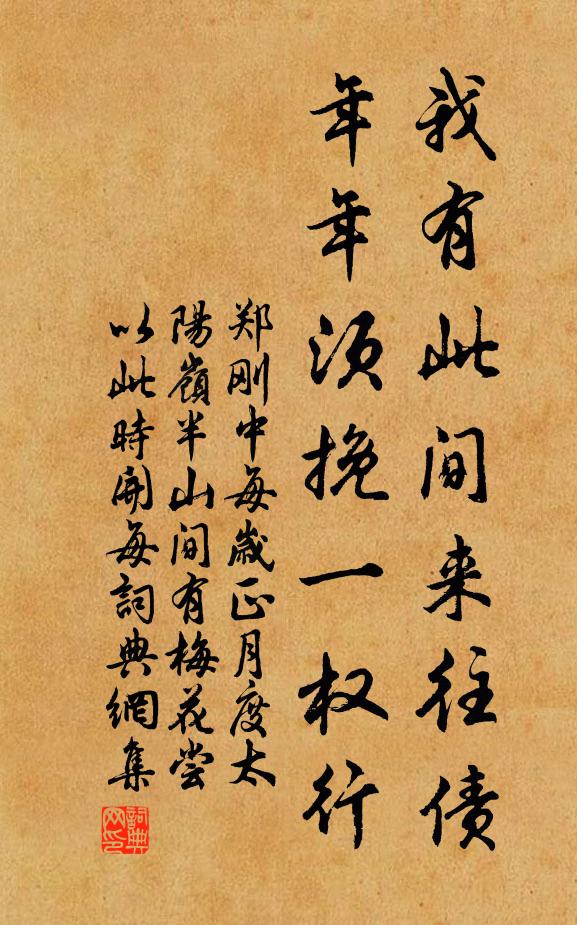 我有此间来往债
年年须挽一权行
郑刚中每歲正月度太
陽嶺半山间有梅花尝
以此時開每詞典網集
詞典网印